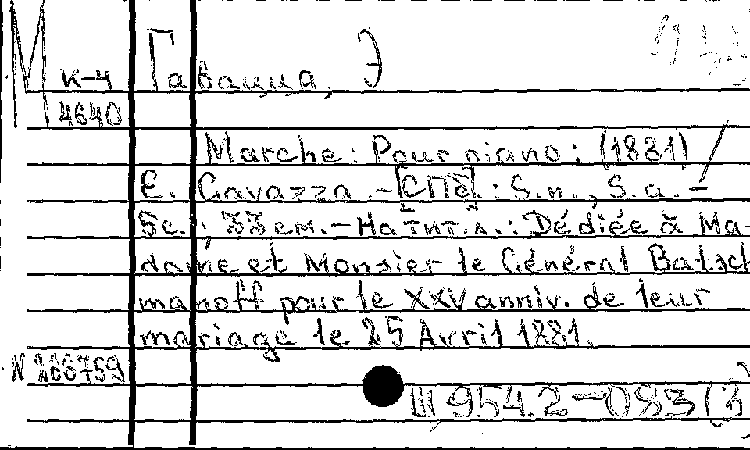 М к-4 Гавацца, Э
4640
Marche: Pour piano: (1881) /
E. Gavazza. - [СПб]: S.n., S.a. -
5с.; 33 см. - На тит. л.: Dédiée à Ma-
dame et Monsier le Général Batsch
manoff pour le XXV anniv. de leur
mariage le 25 Avril 1881.
N 266759
Ш 954.2-083(3)